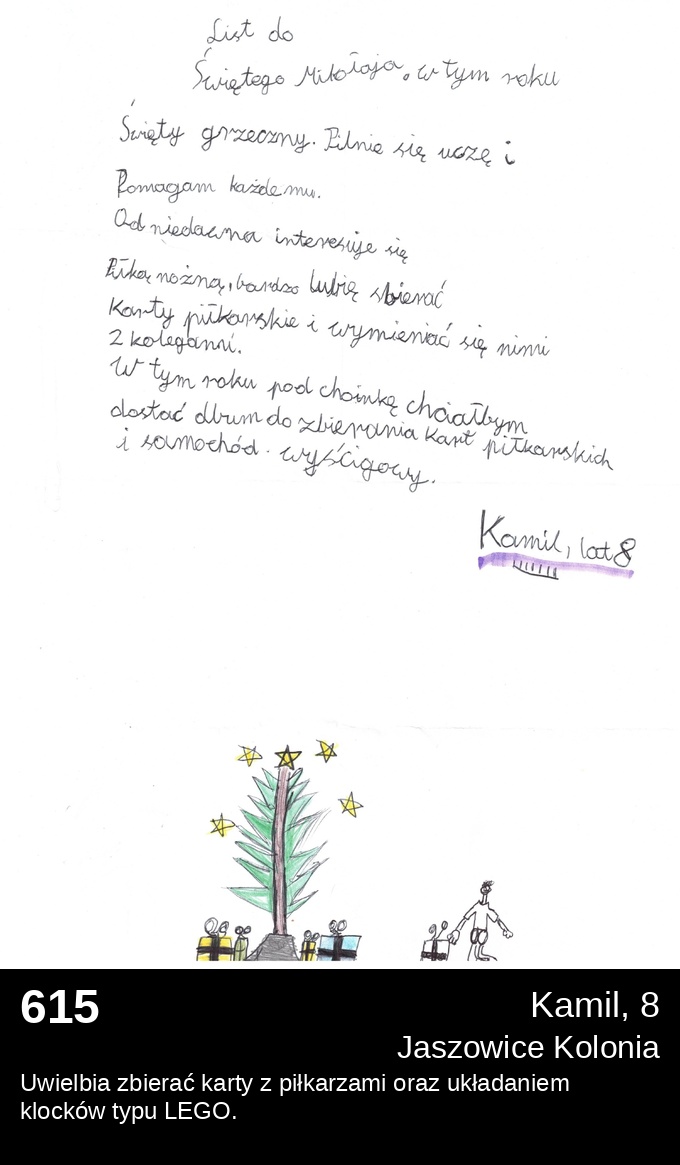 List do
Świętego Mikołaja. w tym roku
Święty grzeczny. Pilnie się uczę i
Pomagam każdemu.
Od niedawna interesuje się
Piłką nożną, bardzo lubię zbierać
Karty piłkarskie i wymieniać się nimi
z koleganni.
W tym roku pod choinkę chciałbym
dostać album do zbierania Kart piłkarskich
i samochód. wyścigowy.
Kamil, lat 8
615
Kamil, 8
Jaszowice Kolonia
Uwielbia zbierać karty z piłkarzami oraz układaniem
klocków typu LEGO.